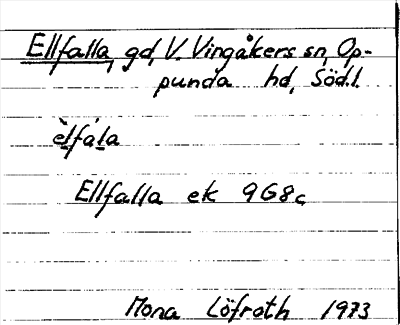 Ellfalla, gd, V. Vingåkers sn, Op-
punda hd, Söd.l.
èlfála
Ellfalla ek 9G8c
Mona Löfroth 1973